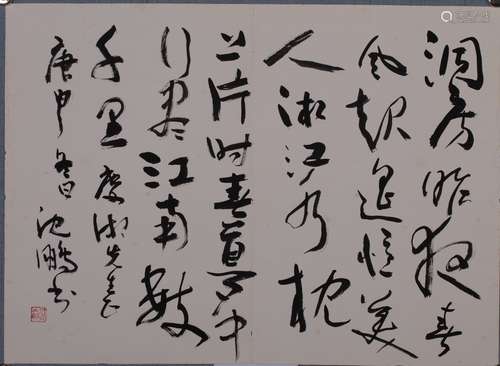 洞房昨夜春
风起遥憶美
人湘江水枕
上片时春夢中
行尽江南数
千里 先生
庚申冬日 沈鹏书